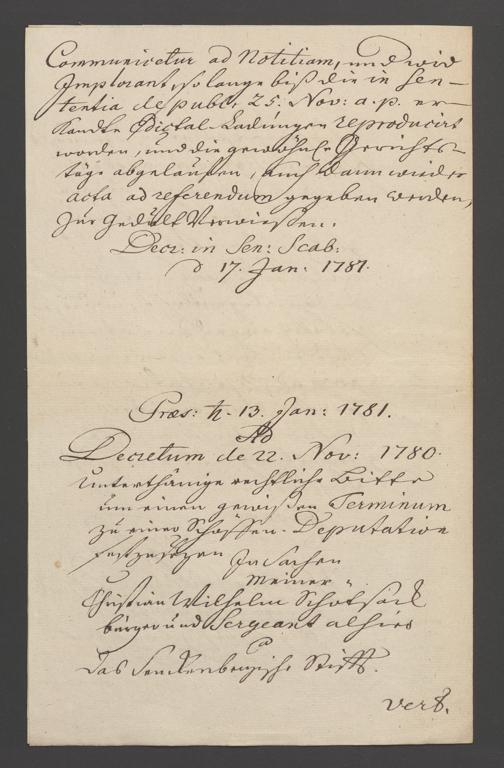 Communicetur ad Notitiam, und wird
Implorant, so lange biß die in Sen-
tentia de publ. 25. Nov: a. p. er-
kandte Edictal-Ladungen reproducirt
worden, und die gewöhnl. Gerichts-
täge abgelauffen, auch dann wieder
acta ad referendum gegeben werden,
zur Gedult Verwiessen.
Decr: in Sen: Scab:
d 17. Jan: 1781.
Præs: ♄. 13. Jan: 1781.
Ad
Decretum de 22. Nov: 1780.
Unterthänige rechtliche Bitte
um einen gewißen Terminum
zu einer Schöffen-Deputation
festzusezen
In Sachen
Meiner
Christian Wilhelm
burger und Sergeant alhier
ca
das Senckenbergische Stifft.